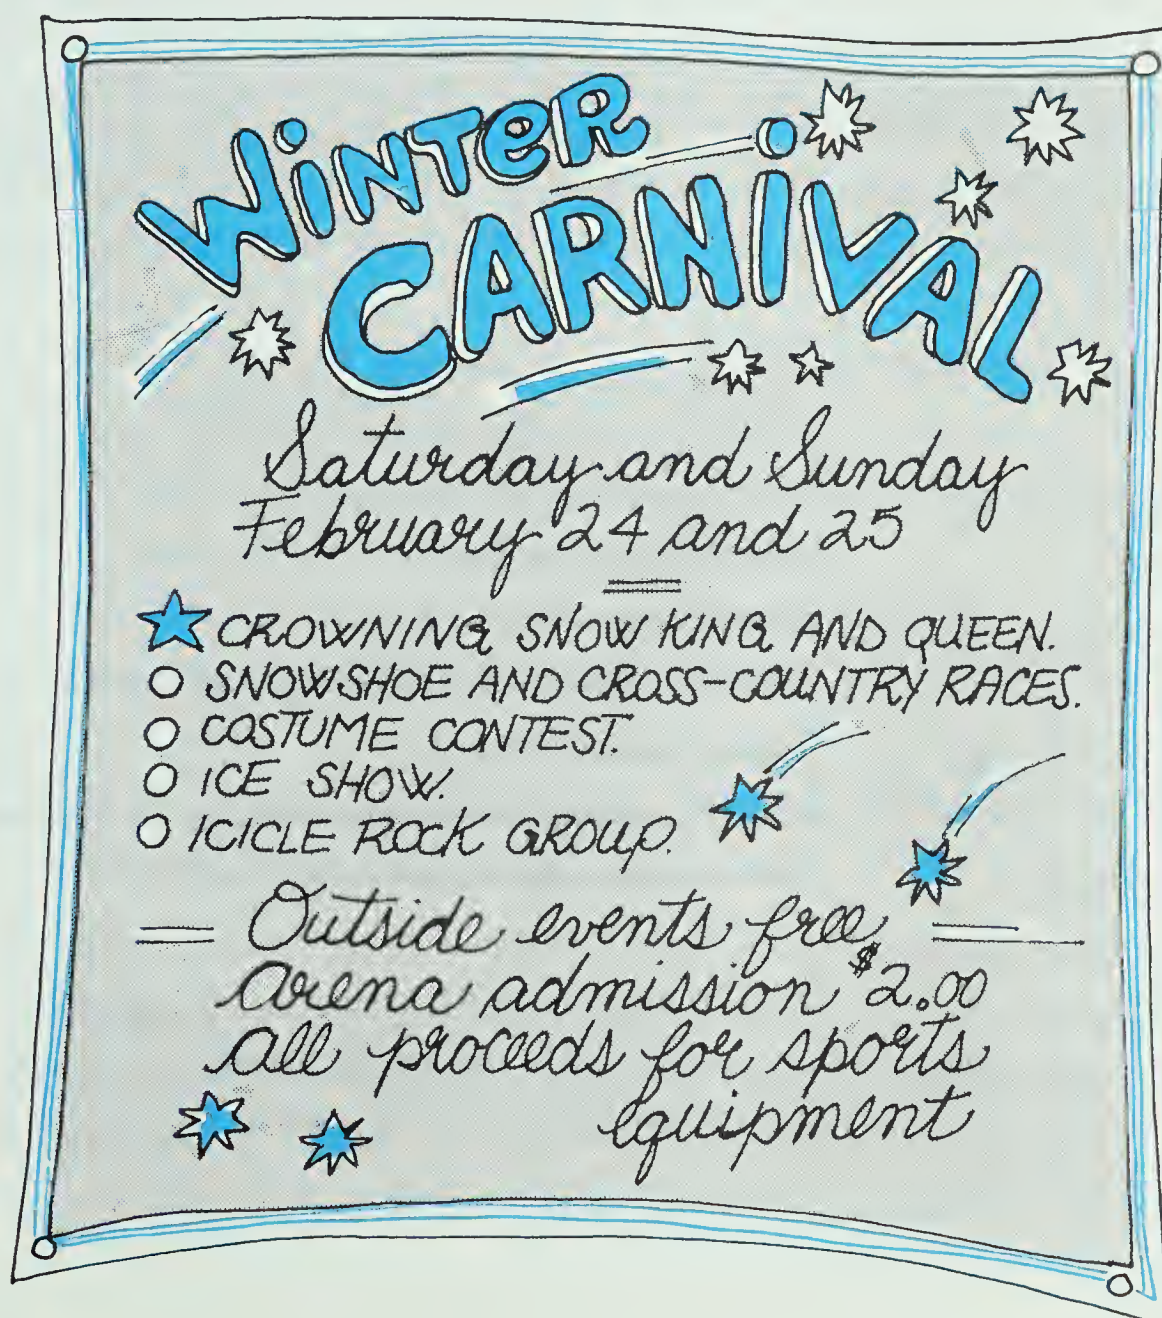 WiNTeR
CARNiVAL
Saturday and Sunday
February 24 and 25
CROWNING SNOW KING AND QUEEN.
SNOWSHOE AND CROSS-COUNTRY RACES.
COSTUME CONTEST.
ICE SHOW.
ICICLE ROCK GROUP.
Outside events free
Arena admission $2.00
All proceeds for sports
equipment